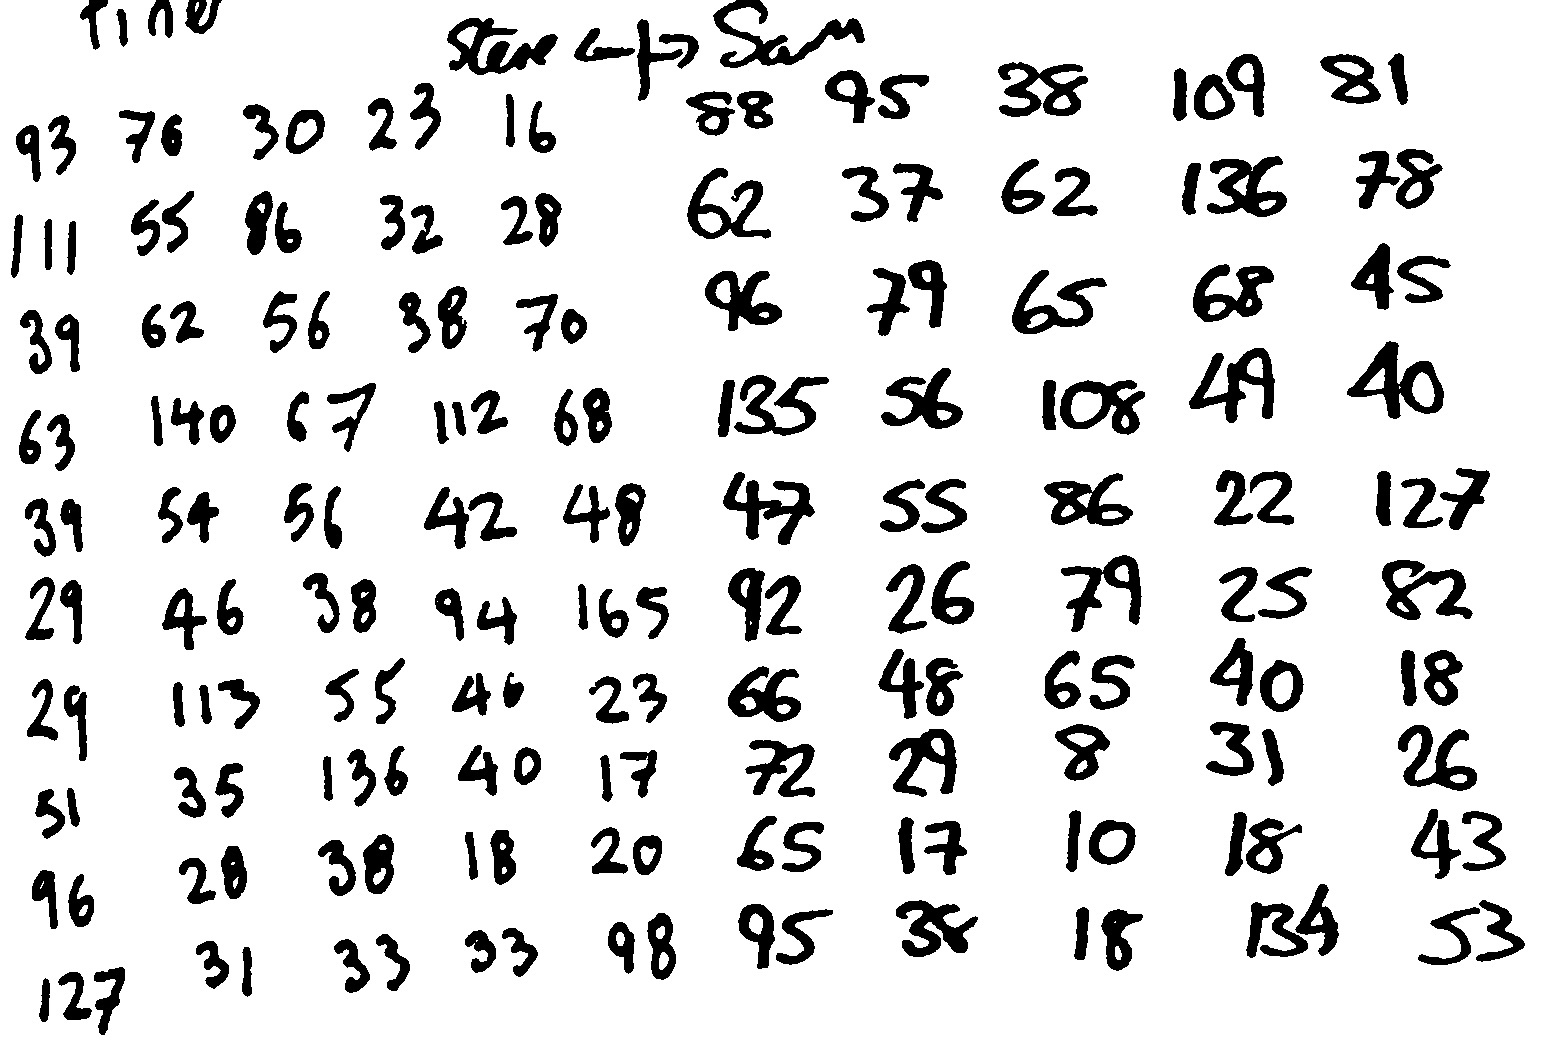 Time
Steve <-|-> Sam
93 76 30 23 16 88 95 38 109 81
111 55 86 32 28 62 37 62 136 78
39 62 56 38 70 96 79 65 68 45
63 140 67 112 68 135 56 108 49 40
39 54 56 42 48 47 55 86 22 127
29 46 38 94 165 92 26 79 25 82
29 113 55 40 23 66 48 65 40 18
51 35 136 40 17 72 29 8 31 26
96 28 38 18 20 65 17 10 18 43
127 31 33 33 98 95 38 18 134 53